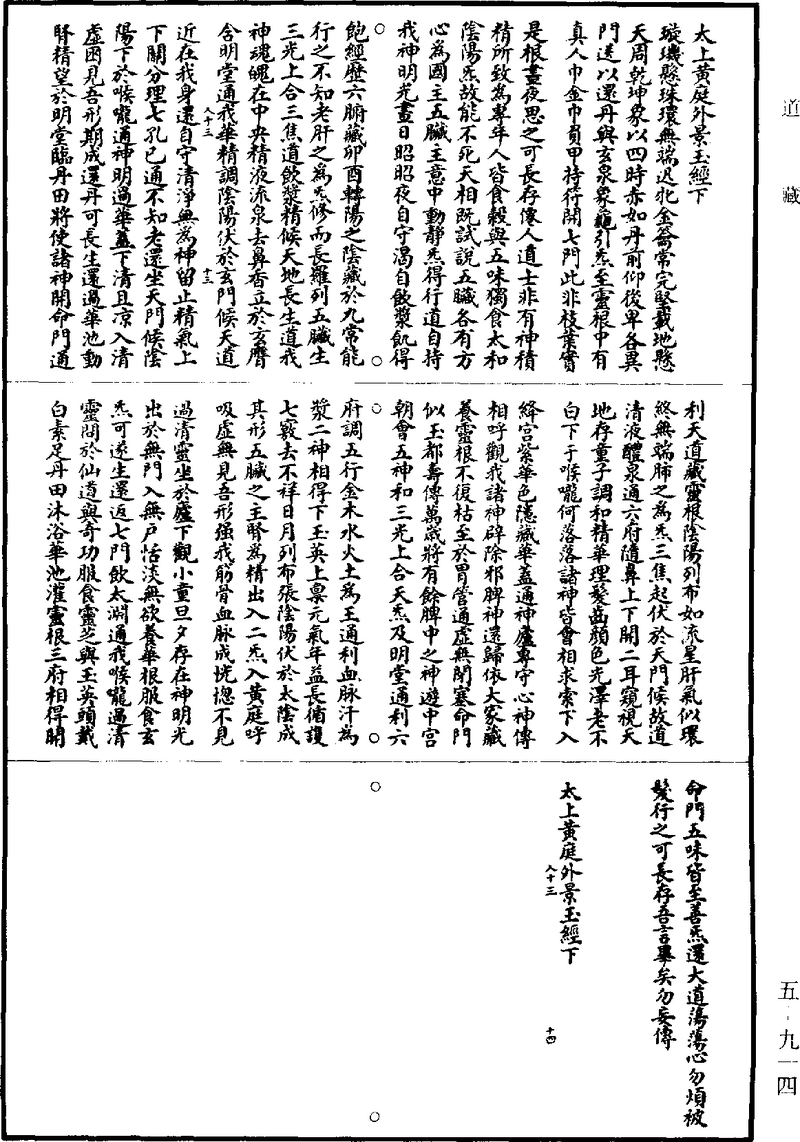 道藏
太上黃庭外景玉經下
璇璣懸珠環無端迟牝金籥常完堅載地懸
天周乾坤象以四時赤如丹前仰後卑各異
門送以還丹與玄泉象龜引炁至靈根中有
真人巾金巾負甲持符開七門此非枝葉實
是根晝夜思之可長存像人道士非有神積
精所致為專年人皆食穀與五味獨食太和
陰陽炁故能不死天相既試說五臟各有方
心為國主五臟主意中動靜炁得行道自持
我神明光晝日昭昭夜自守渴自飲漿飢得
飽經歷六腑藏卯酉轉陽之陰藏於九常能
行之不知老肝之為炁修而長羅列五臟生
三光上合三焦道飲漿精候天地長生道我
神魂魄在中央精液流泉去鼻香立於玄膺
含明堂通我華精調陰陽伏於玄門候天道
八十三
十三
近在我身還自守清淨無為神留止精氣上
下關分理七孔已通不知老還坐天門候陰
陽下於喉嚨通神明過華蓋下清且凉入清
虛困見吾形期成還丹可長生還過華池動
腎精望於明堂臨丹田將使諸神開命門通
利天道藏靈根陰陽列布如流星肝氣似環
終無端肺之為炁三焦起伏於天門候故道
清液醴泉通六府隨鼻上下開二耳窺視天
地存童子調和精華理髮齒顏色光澤老不
白下于喉嚨何落落諸神皆會相求索下入
絳宮紫華色隱藏華蓋通神廬專守心神傳
相呼觀我諸神辟除邪脾神還歸依大家藏
養靈根不復枯至於胃管通虛無閉塞命門
似玉都壽傳萬歲將有餘脾中之神遊中宮
朝會五神和三光上合天炁及明堂通利六
府調五行金木水火土為王通利血脉汗為
漿二神相得下玉英上稟元氣年益長循護
七竅去不祥日月列布張陰陽伏於太陰成
其形五臟之主腎為精出入二炁入黃庭呼
吸虛無見吾形强我筋骨血脉成恍惚不見
過清靈坐於廬下觀小童旦夕存在神明光
出於無門入無戶恬淡無欲養華根服食玄
炁可遂生還返七門飲太淵通我喉嚨過清
靈問於仙道與奇功服食靈芝與玉英頭戴
白素足丹田沐浴華池灌靈根三府相得開
命門五味皆至善炁還大道蕩蕩心勿煩被
髮行之可長存吾言畢矣勿妄傳
太上黃庭外景玉經下
八十三
十四
五-九一四